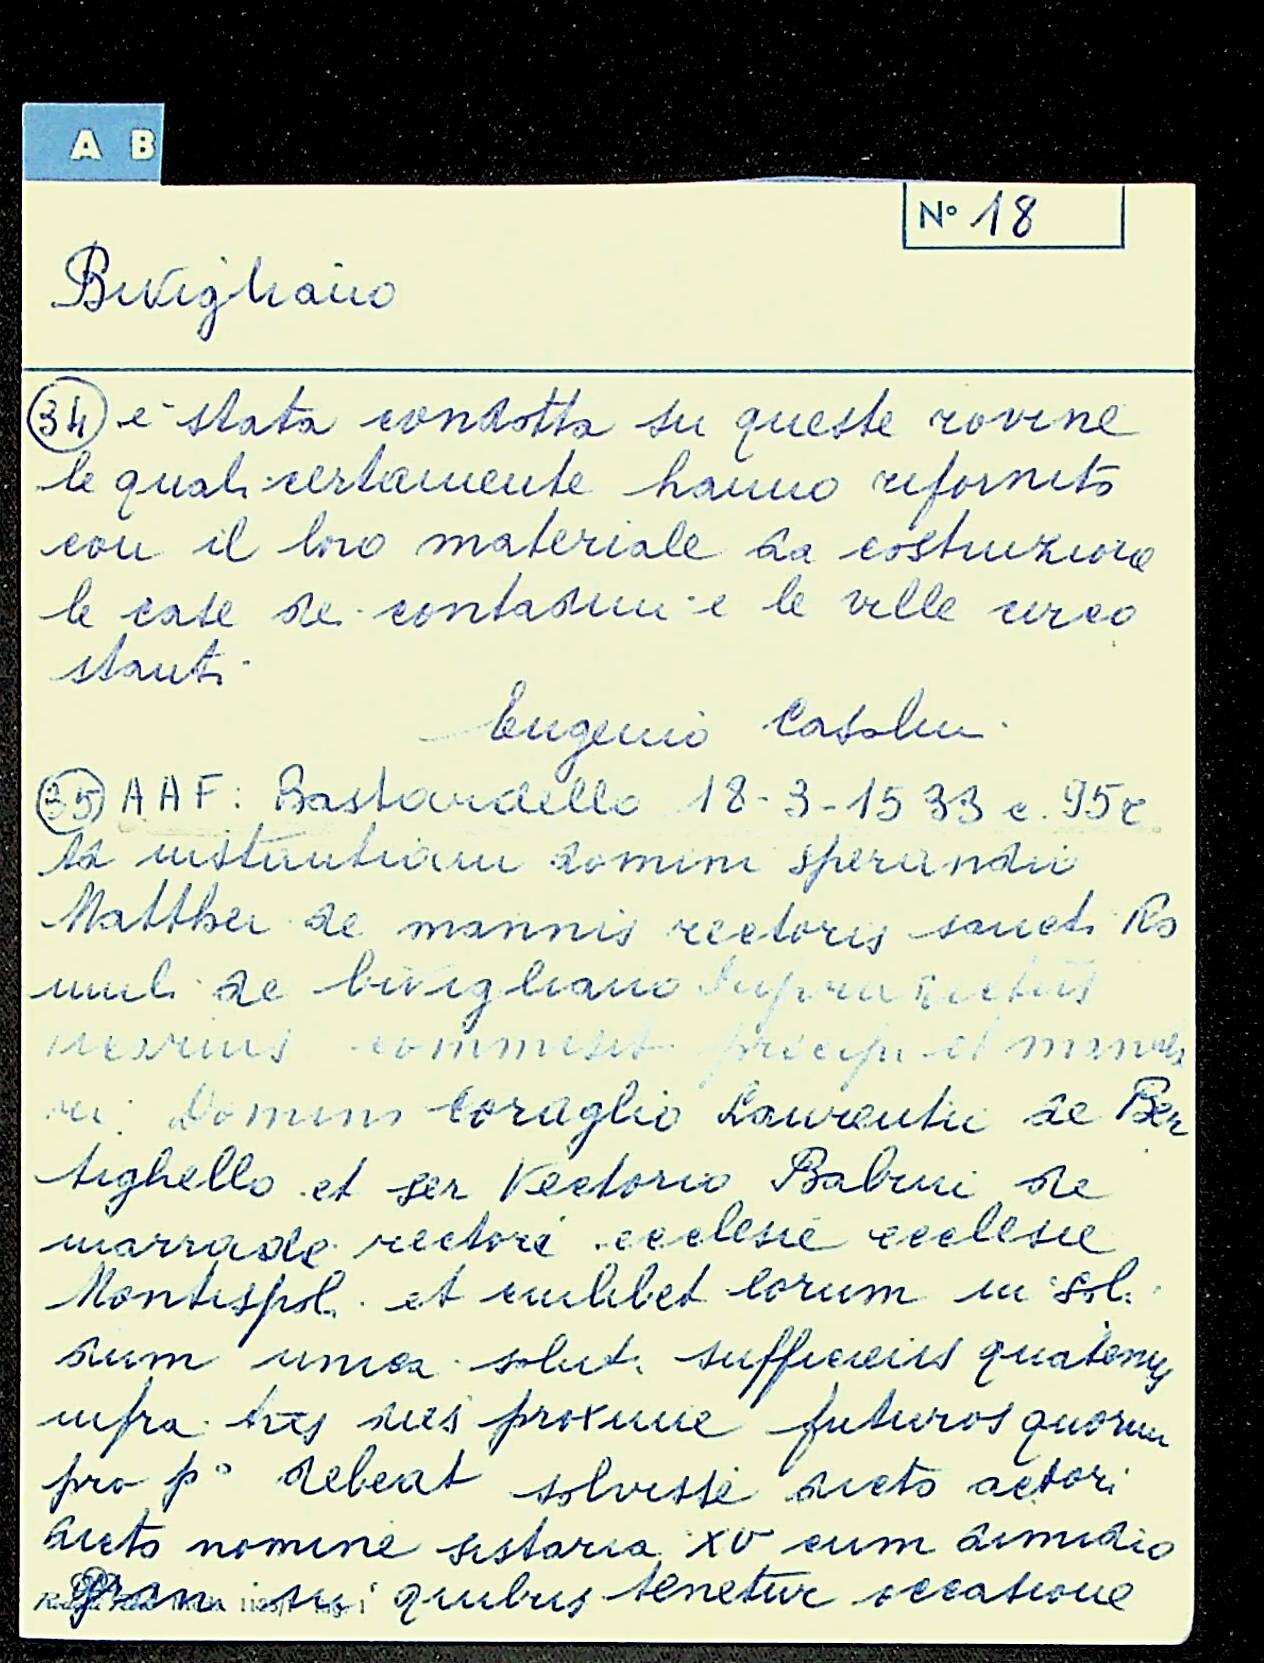 A B
N° 18
Bivigliano
34 è stata condotta su queste rovine
le quali certamente hanno rifornito
con il loro materiale da costruzione
le case dei contadini e le ville circo
stanti.
Eugenio Casalini.
35 AAF: Bastardello 18-3-1533 c. 95r
Ad instantiam domini sperandii
Matthei de mannis rectoris sancti Ro
muli de bivigliano supra dictus
vicarius commisit precipi et manda
ri Domino Coraglio Laurentii de Ber
tighello et ser Vectorio Babini de
marradi rectori ecclesie ecclesie
Montispol. et cuilibet eorum in soli
dum unica solut. sufficiens quatenus
infra tres dies proxime futuros quorum
pro p° debeat solvisse dicto actori
dicto nomine sistaria XV cum dimidio
grani in quibus tenetur occasione